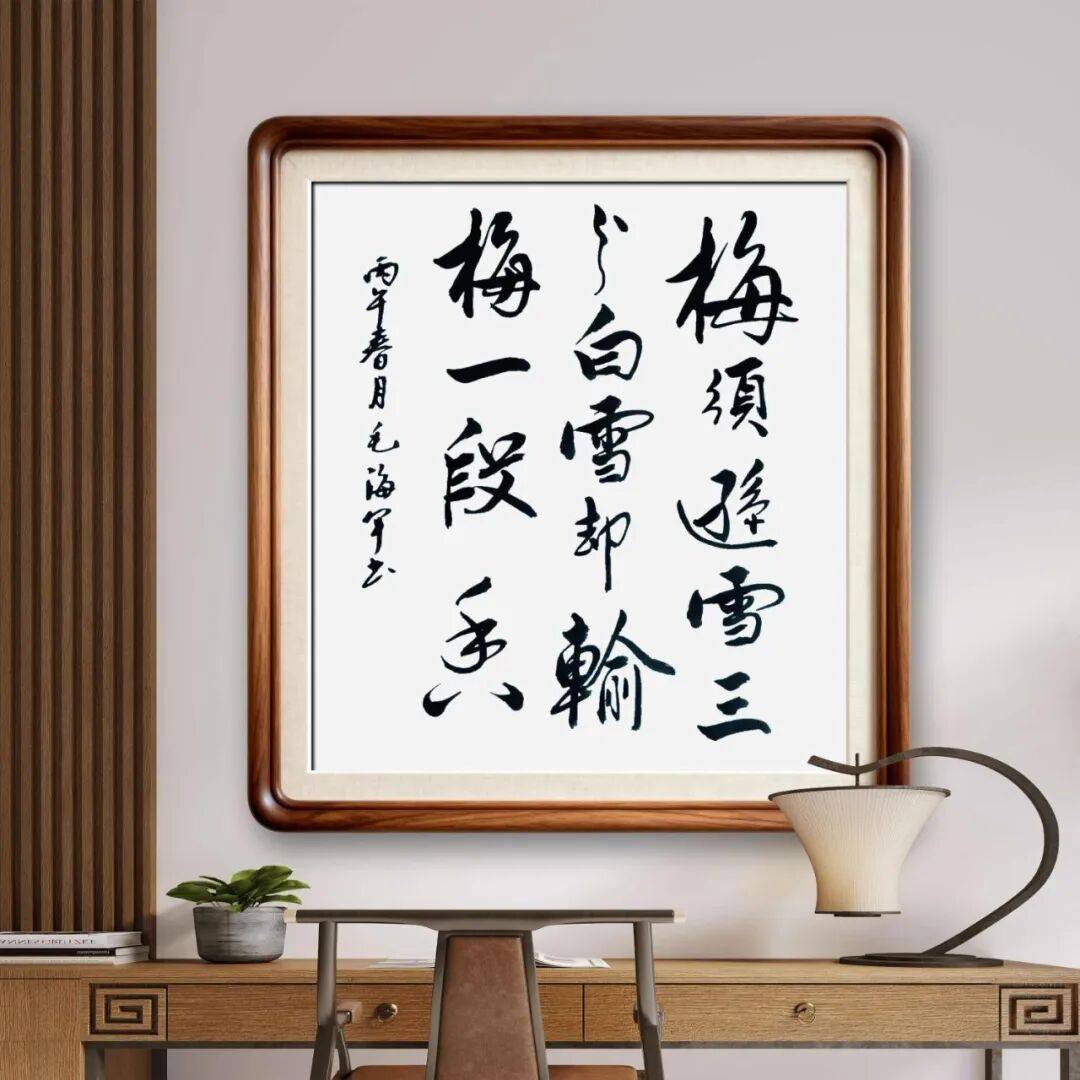 梅須遜雪三
分白雪却輸
梅一段香
丙午春月毛海军书